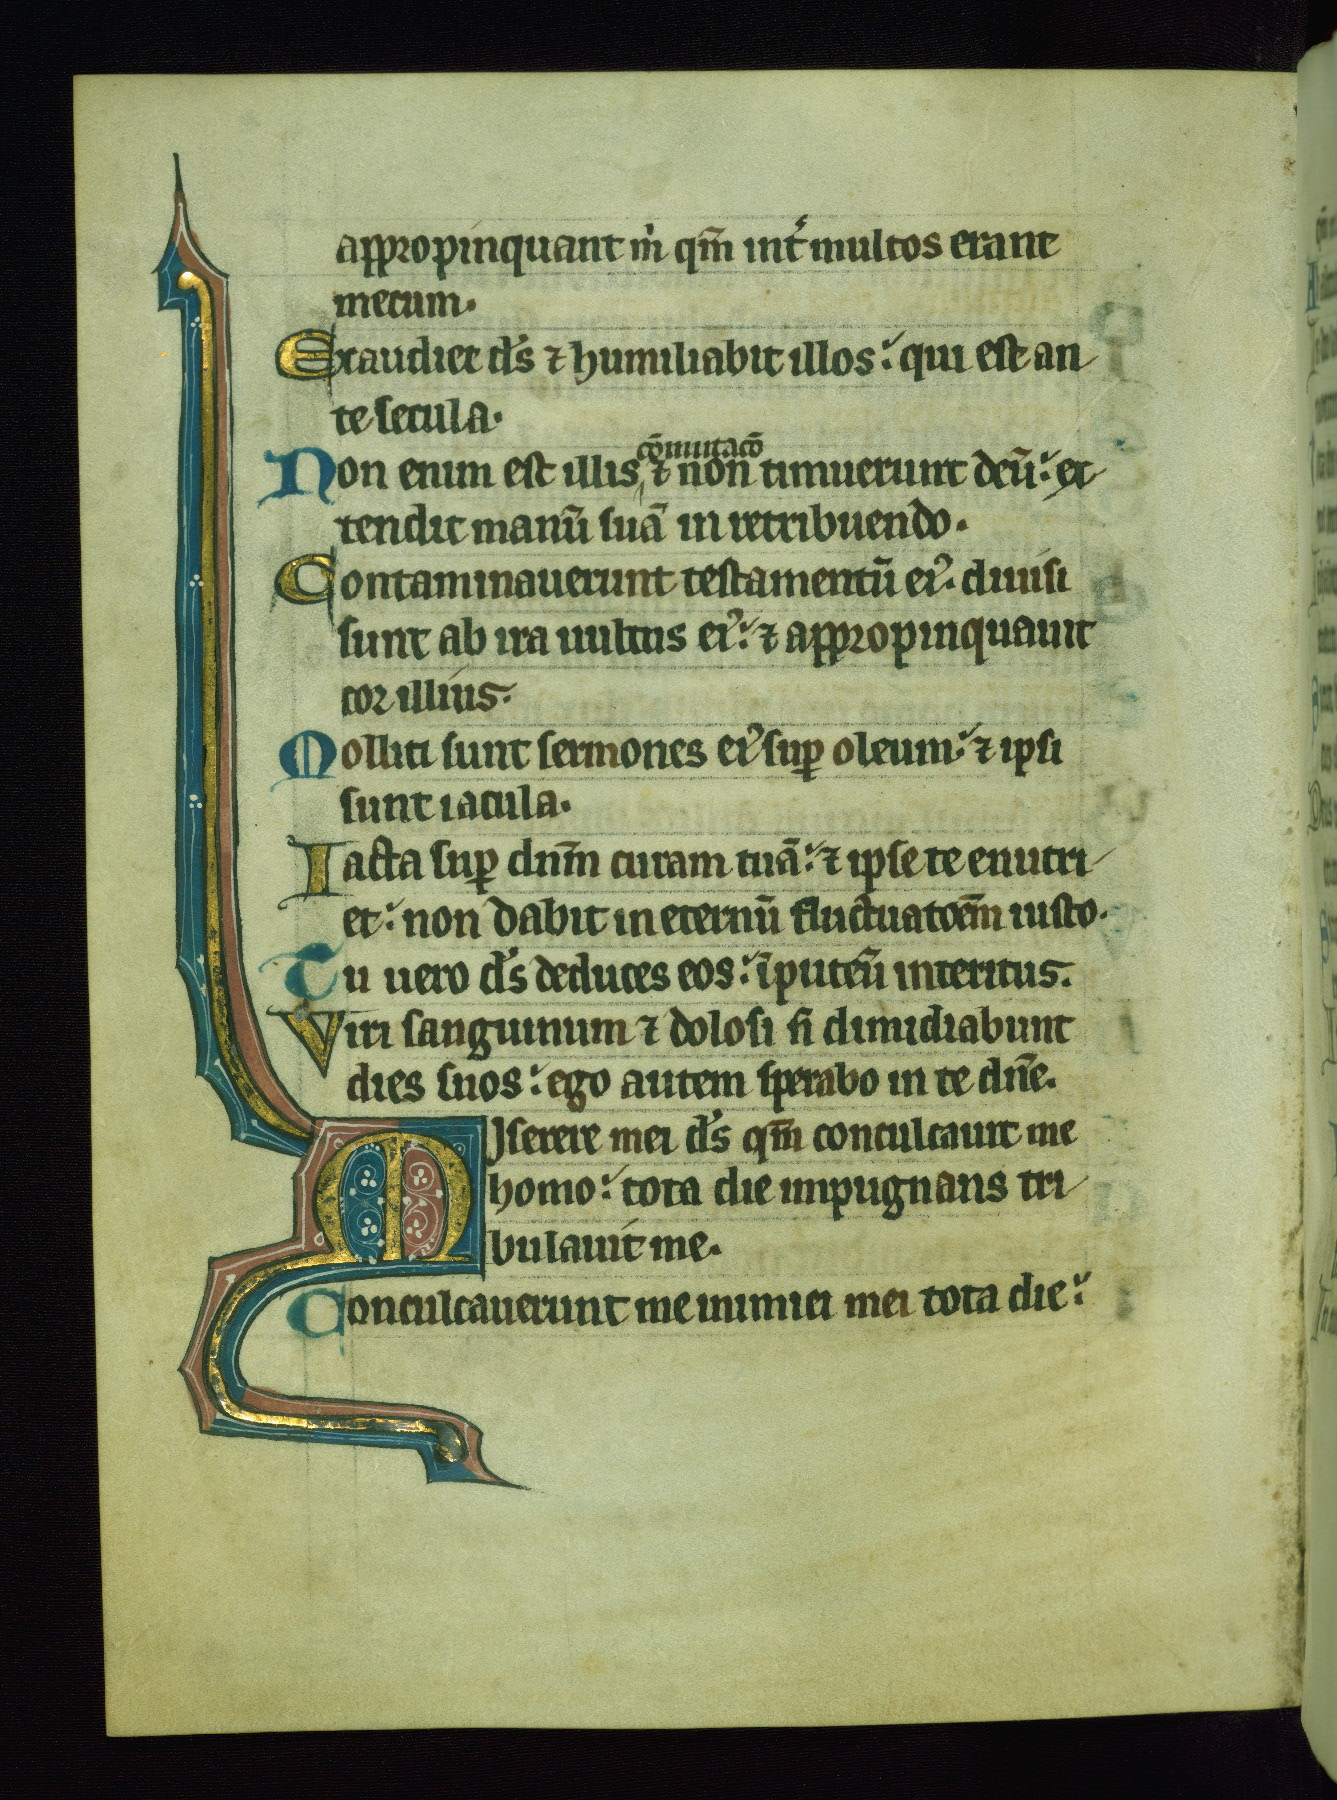 appropinquant m̍ qm̄ int̾ multos erant
mecum.
Exaudiet d̄s ⁊ humiliabit illos: qui est an
te secula.
cōmutacō
Non enim est illis ⁊ non timuerunt deū: ex
tendit manū suā in retribuendo.
Contaminauerunt testamentū ei᾿. diuisi
sunt ab ira uultus ei᾿: ⁊ appropinquauit
cor illius.
Molliti sunt sermones ei᾿ suꝑ oleum: ⁊ ipsi
sunt iacula.
Iacta suꝑ dnm̄ curam tuā: ⁊ ipse te enutri
et: non dabit in eternū fluctuatōem iusto.
Tu uero d̄s deduces eos: ī puteū interitus.
Viri sanguinum ⁊ dolosi n̄ dimidiabunt
dies suos: ego autem sperabo in te dn̄e.
Miserere mei d̄s qm̄ conculcauit me
homo: tota die impugnans tri
bulauit me.
Conculcauerunt me inimici mei tota die: